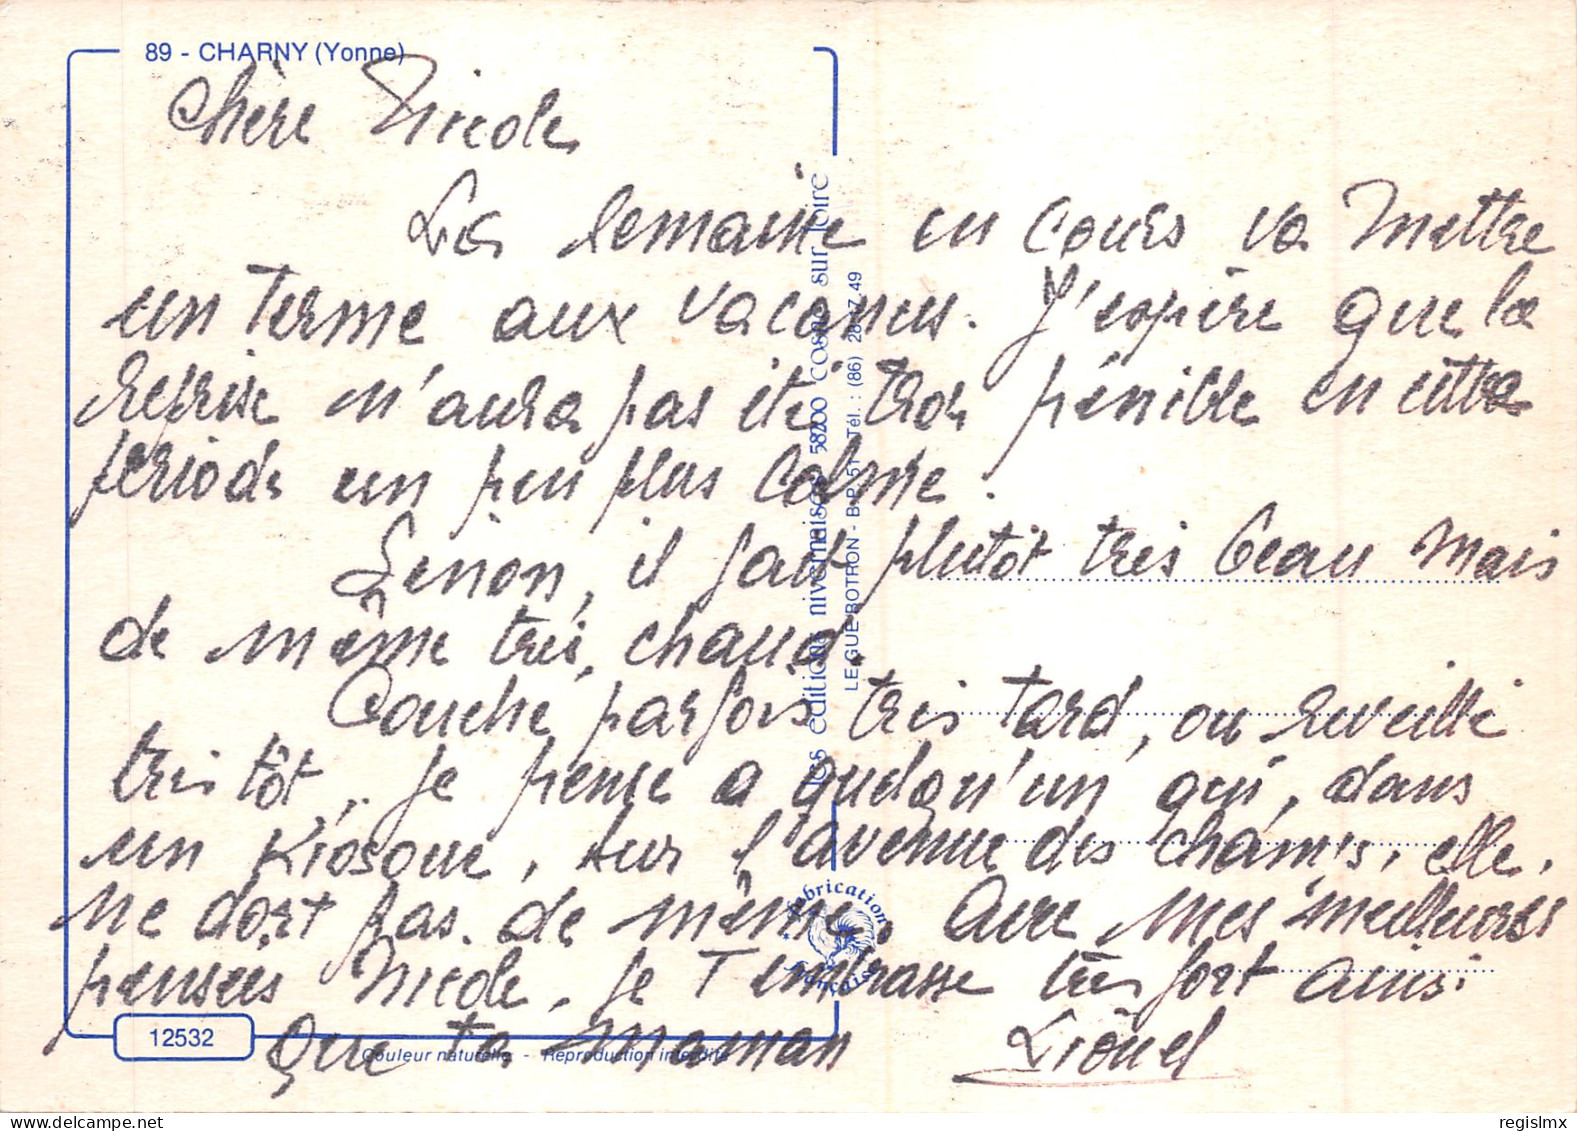 89 - CHARNY (Yonne)
Chère Nicole
La semaine en cours va mettre
un terme aux vacances. J'espère que la
reprise n'aura pas été trop pénible en cette
période un peu plus calme.
Sinon, il fait plutôt très beau mais
de même très chaud.
Couché parfois très tard, ou réveillé
très tôt, je pense a quelqu'un qui, dans
un Kiosque, sur l'avenue des champs, elle,
ne dort pas de même. Avec mes meilleures
pensées Nicole, je T'embrasse très fort ainsi
que ta maman Lionel
les éditions nivernaises 58200 cosne sur loire
LE GUE BOTRON - B.P. 51 Tél. : (86) 28.17.49
fabrication française
12532
Couleur naturelle - Reproduction interdite
regislmx